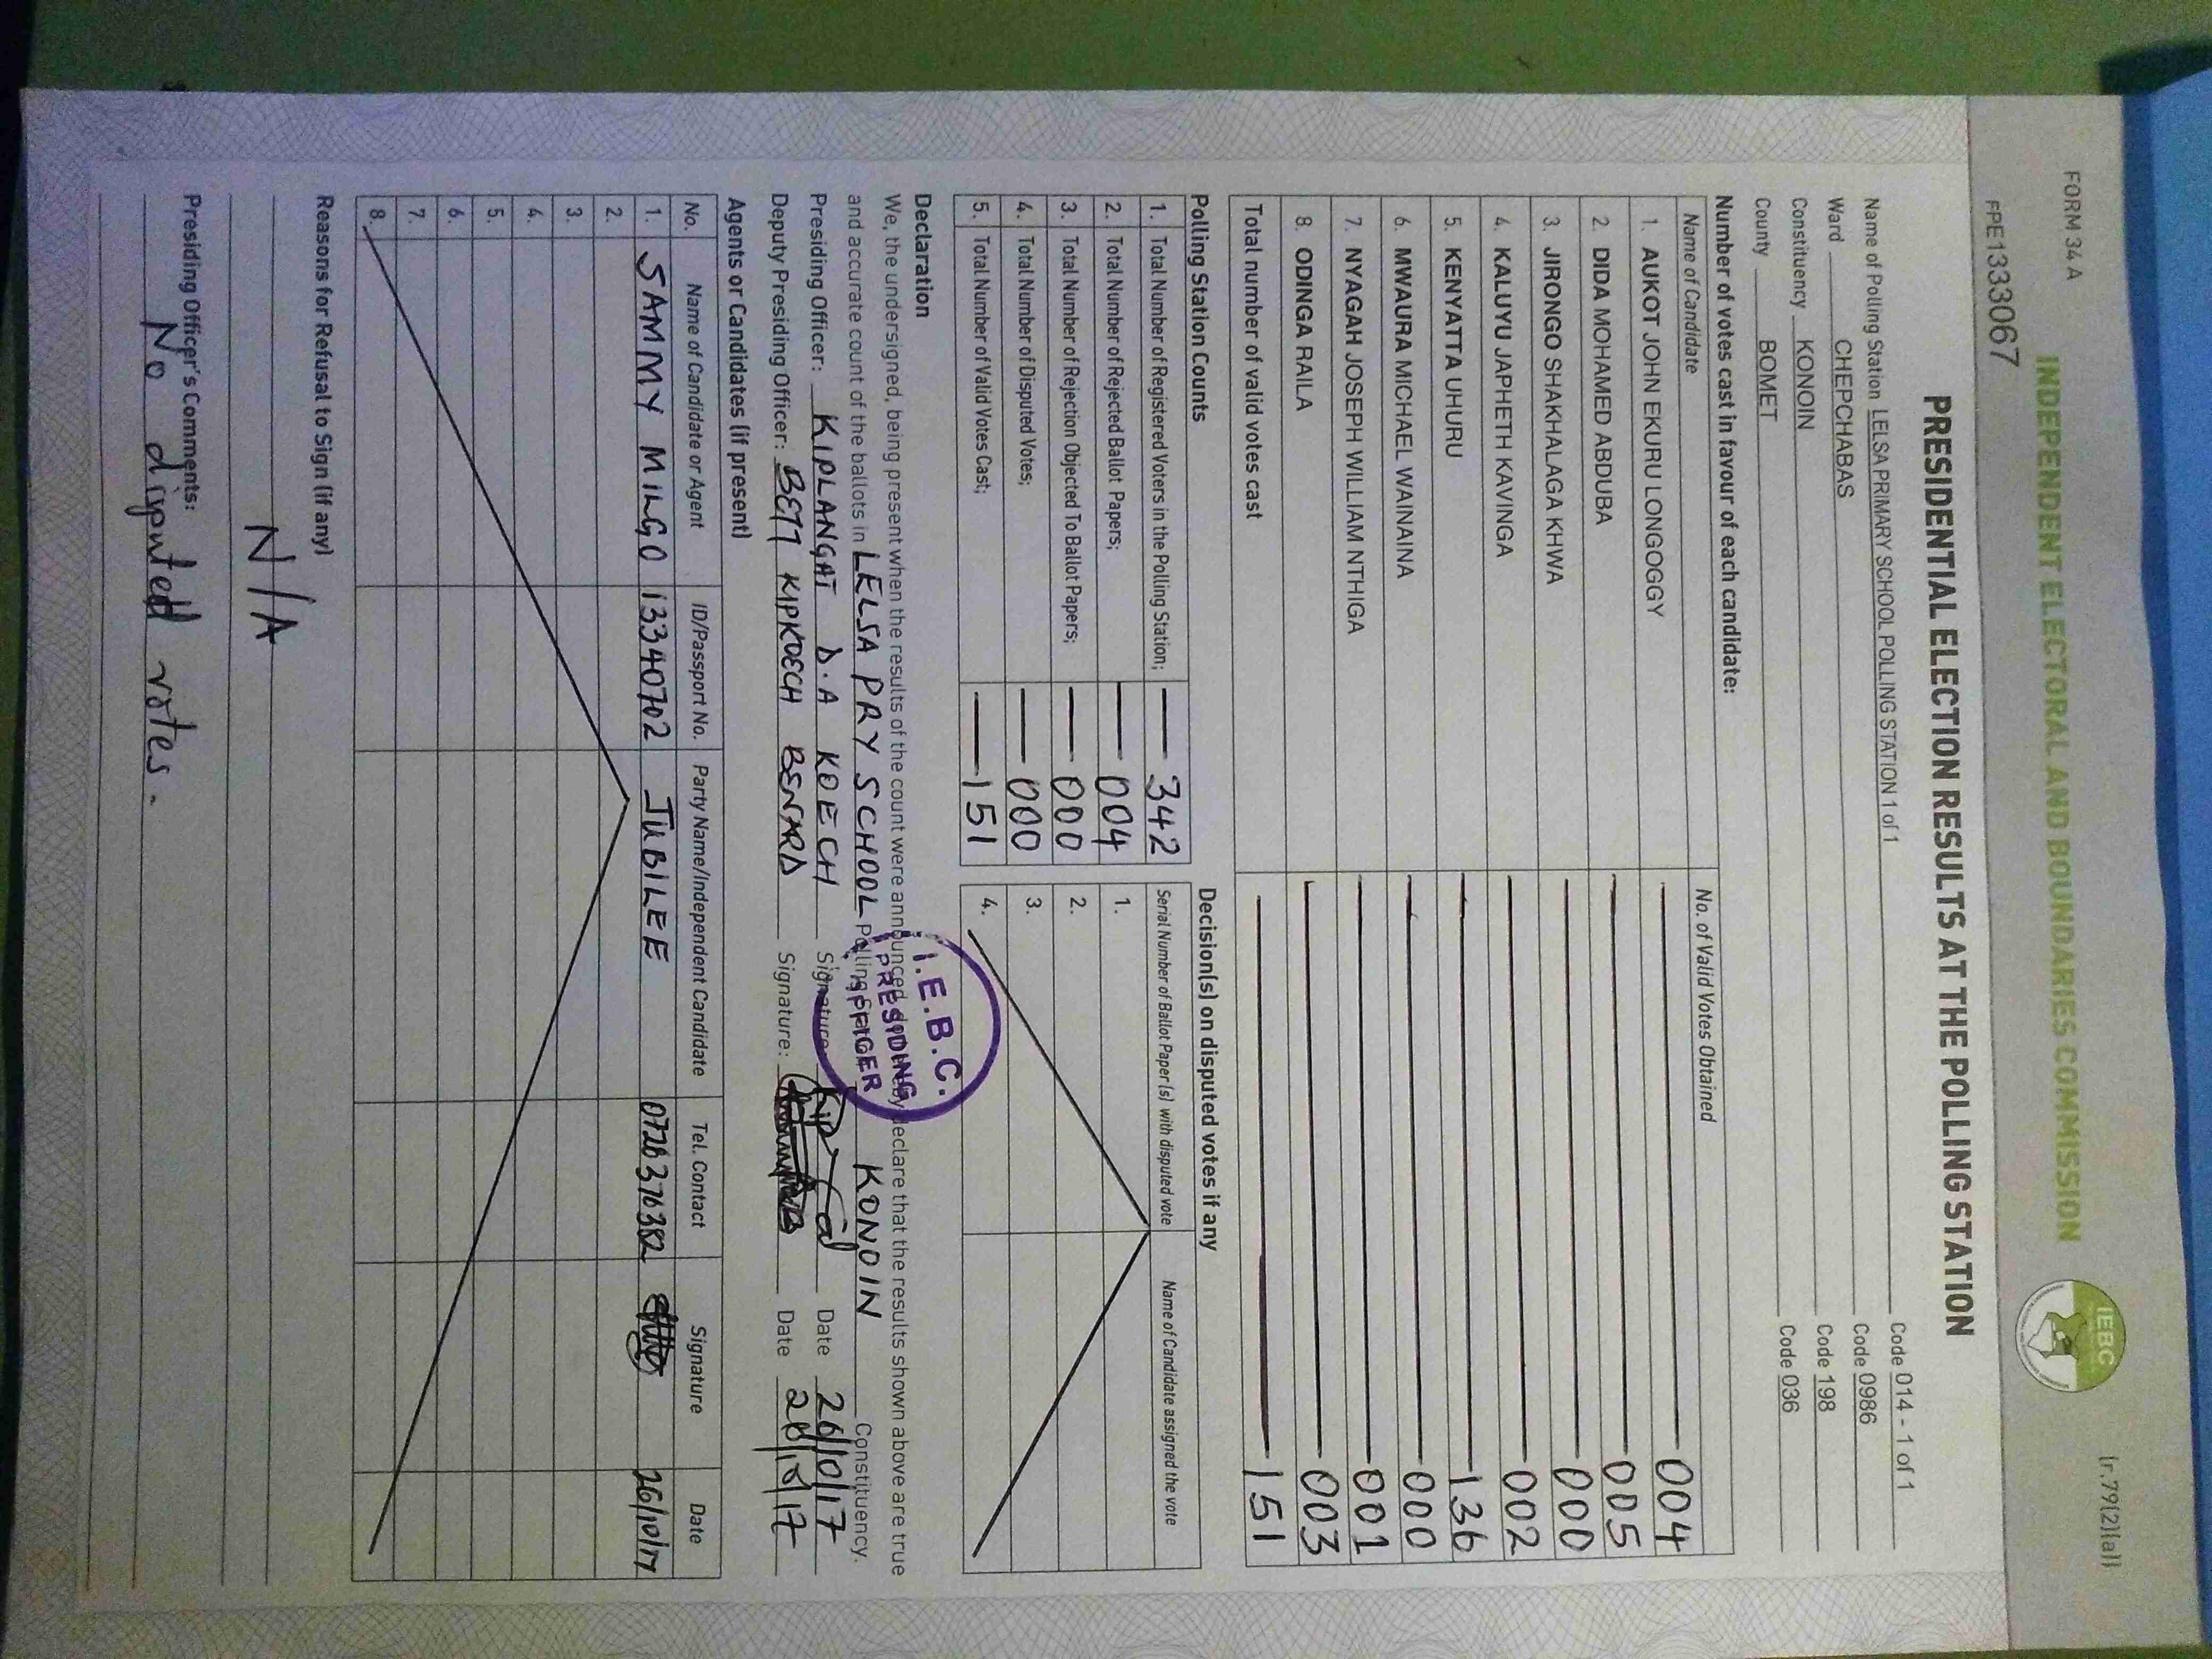 FORM 34 A
[r.79(2)(a)]
INDEPENDENT ELECTORAL AND BOUNDARIES COMMISSION
IEBC
FPE133067
PRESIDENTIAL ELECTION RESULTS AT THE POLLING STATION
Name of Polling Station LELSA PRIMARY SCHOOL POLLING STATION 1 of 1 Code 014 - 1 of 1
Ward CHEPCHABAS Code 0986
Constituency KONOIN Code 198
County BOMET Code 036
Number of votes cast in favour of each candidate:
Name of Candidate No. of Valid Votes Obtained
1. AUKOT JOHN EKURU LONGOGGY 004
2. DIDA MOHAMED ABDUBA 005
3. JIRONGO SHAKHALAGA KHWA 000
4. KALUYU JAPHETH KAVINGA 002
5. KENYATTA UHURU 136
6. MWAURA MICHAEL WAINAINA 000
7. NYAGAH JOSEPH WILLIAM NTHIGA 001
8. ODINGA RAILA 003
Total number of valid votes cast 151
Polling Station Counts
1. Total Number of Registered Voters in the Polling Station; 342
2. Total Number of Rejected Ballot Papers; 004
3. Total Number of Rejection Objected To Ballot Papers; 000
4. Total Number of Disputed Votes; 000
5. Total Number of Valid Votes Cast; 151
Decision(s) on disputed votes if any
Serial Number of Ballot Paper (s) with disputed vote Name of Candidate assigned the vote
1.
2.
3.
4.
Declaration
We, the undersigned, being present when the results of the count were announced, do hereby declare that the results shown above are true
and accurate count of the ballots in LELSA PRY SCHOOL Polling Station KONOIN Constituency.
Presiding Officer: KIPLANGAT D.A KOECH Signature: Date 26/10/17
Deputy Presiding Officer: BETT KIPKOECH BENARD Signature: Date 26/10/17
I.E.B.C.
PRESIDING
OFFICER
Agents or Candidates (if present)
No. Name of Candidate or Agent ID/Passport No. Party Name/Independent Candidate Tel. Contact Signature Date
1. SAMMY MILGO 13340702 JUBILEE 0726376382 26/10/17
2.
3.
4.
5.
6.
7.
8.
Reasons for Refusal to Sign (if any)
N/A
Presiding Officer's Comments:
No disputed votes.